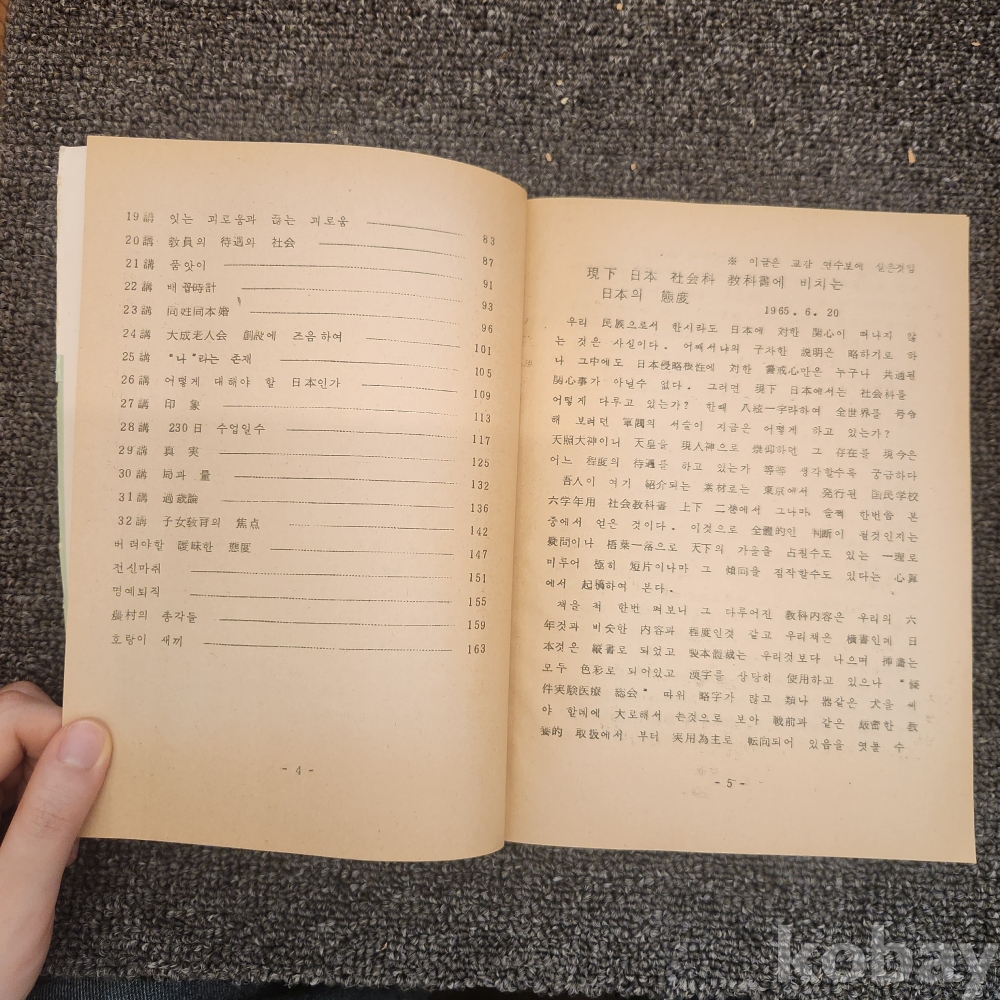 19講 잇는 괴로움과 끊는 괴로움 83
20講 教員의 待遇와 社会 87
21講 품앗이 91
22講 배꼽時計 93
23講 同姓同本婚 96
24講 大成老人会 創設에 즈음하여 101
25講 “나”라는 존재 105
26講 어떻게 대해야 할 日本인가 109
27講 印象 113
28講 230日 수업일수 117
29講 真実 125
30講 局과 量 132
31講 過歲論 136
32講 子女教育의 焦点 142
버려야할 曖昧한 態度 147
전신마취 151
명예퇴직 155
農村의 총각들 159
호랑이 새끼 163
- 4 -
※ 이글은 교감 연수보에 실은것임
現下 日本 社会科 教科書에 비치는
日本의 態度
1965. 6. 20
우리 民族으로서 한시라도 日本에 対한 関心이 떠나지 않
는 것은 사실이다. 어째서냐의 구차한 説明은 略하기로 하
나 그中에도 日本侵略根性에 対한 警戒心만은 누구나 共通된
関心事가 아닐수 없다. 그러면 現下 日本에서는 社会科를
어떻게 다루고 있는가? 한때 八紘一宇라하여 全世界를 号令
해 보려던 軍閥의 서슬이 지금은 어떻게 하고 있는가?
天照大神이니 天皇을 現人神으로 崇仰하던 그 存在를 現今은
어느 程度의 待遇를 하고 있는가 等等 생각할수록 궁금하다
吾人이 여기 紹介되는 素材로는 東京에서 発行된 国民学校
六学年用 社会教科書 上下 二巻에서 그나마 슬쩍 한번읽 본
중에서 얻은 것이다. 이것으로 全體的인 判断이 될것인지는
疑問이나 梧葉一落으로 天下의 가을을 占칠수도 있는 一理로
미루어 極히 短片이나마 그 傾向을 짐작할수도 있다는 心算
에서 起稿하여 본다.
책을 척 한번 펴보니 그 다루어진 教科内容은 우리의 六
年것과 비슷한 内容과 程度인것 같고 우리책은 横書인데 日
本것은 縦書로 되었고 製本體裁는 우리것보다 나으며 挿畵는
모두 色彩로 되어있고 漢字를 상당히 使用하고 있으나 “條
件実験医療 総会” 따위 略字가 많고 類나 器같은 犬을 써
야 할데에 大로해서 쓰는것으로 보아 戦前과 같은 厳密한 教
要的 取扱에서 부터 実用為主로 転向되어 있음을 엿볼 수
- 5 -
kobay